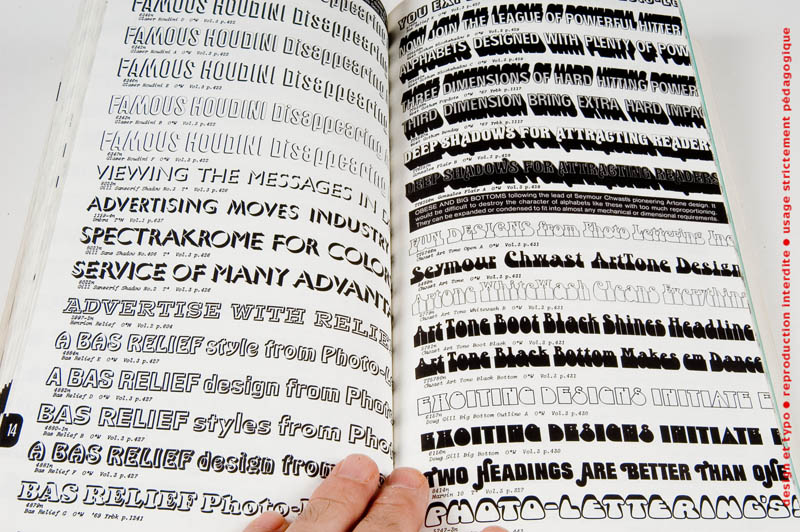 FAMOUS HOUDINI Disappearing
Glaser Houdini O*W Vol.2 p.422
FAMOUS HOUDINI Disappearing
Glaser Houdini A O*W Vol.2 p.422
FAMOUS HOUDINI Disappearing
Glaser Houdini B O*W Vol.2 p.422
FAMOUS HOUDINI Disappearing
FAMOUS HOUDINI Disappearing
VIEWING THE MESSAGES IN
Gill Sanserif Shadow No.3 T* Vol.2 p.426
ADVERTISING MOVES INDUSTRY
SPECTRAKROME FOR COLOR
Gill Sans Shadow No.406 T* Vol.2 p.426
SERVICE OF MANY ADVANTA
ADVERTISE WITH RELIEF
A BAS RELIEF style from Photo-L
Bas Relief E O*W Vol.2 p.427
A BAS RELIEF design from Phot
Bas Relief D O*W Vol.2 p.427
BAS RELIEF styles from Pho
Bas Relief B O*W Vol.2 p.427
A BAS RELIEF design from
Bas Relief F O*W Vol.2 p.427
BAS RELIEF Photo-
Bas Relief C O*W '69 Yrbk p.1241
14
YOU
NOW JOIN THE LEAGUE OF POWERFUL HITTER
ALPHABETS DESIGNED WITH PLENTY OF POW
THREE DIMENSIONS OF HARD HITTING POWER
THIRD DIMENSION BRING EXTRA HARD IMPA
DEEP SHADOWS FOR ATTRACTING READERS
DEEP SHADOWS FOR ATTRACTING READERS
OBESE AND BIG BOTTOMS following the lead of Seymour Chwasts pioneering Artone design. It
would be difficult to destroy the character of alphabets like these with too much reproportioning.
They can be expanded or condensed to fit into almost any mechanical or dimensional requirements.
FUN DESIGNS from Photo Lettering Inc
Chwast Art Tone Open A O*W Vol.2 p.421
Seymour Chwast ArtTone Design
Chwast Art Tone O*W Vol.2 p.421
Artone WhiteWash Cleans Everythin
Chwast Art Tone Whitewash B O*W Vol.2 p.421
Art Tone Boot Black Shines Headline
Chwast Art Tone Boot Black O*W Vol.2 p.421
Art Tone Black Bottom Makes em Dance
Chwast Art Tone Black Bottom O*W Vol.2 p.421
EXCITING DESIGNS INITIATE E
Doug Gill Big Bottom Outline A O*W Vol.2 p.430
EXCITING DESIGNS INITIATE E
Doug Gill Big Bottom O*W Vol.2 p.430
TWO HEADINGS ARE BETTER THAN ONE
Marvin 10 T* Vol.2 p.317
PHOTO-LETTERING'S
design et typo ● reproduction interdite ● usage strictement pédagogique